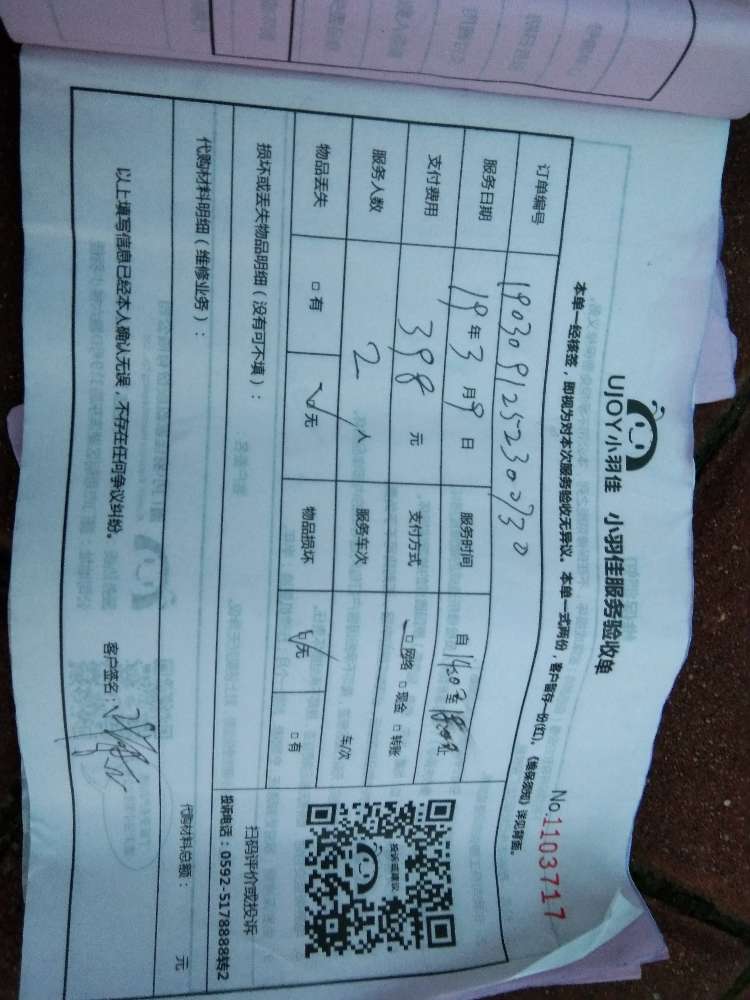 UJOY小羽佳 小羽佳服务验收单
No.1103717
本单一经核签，即视为对本次服务验收无异议。本单一式两份，客户留存一份(红)，《维保须知》详见背面。
订单编号 190309125230030730
服务日期 19年3月9日 服务时间 自14:07至18:00止
支付费用 398 元 支付方式 □网络 □现金 □转账
服务人数 2 人 服务车次 车/次
物品丢失 □有 ✓无 物品损坏 ✓无 □有
投诉或建议
扫码评价或投诉
投诉电话：0592-5178888转2
损坏或丢失物品明细（没有可不填）：
代购材料明细（维修业务）：
代购材料总额： 元
以上填写信息已经本人确认无误，不存在任何争议纠纷。
客户签名：